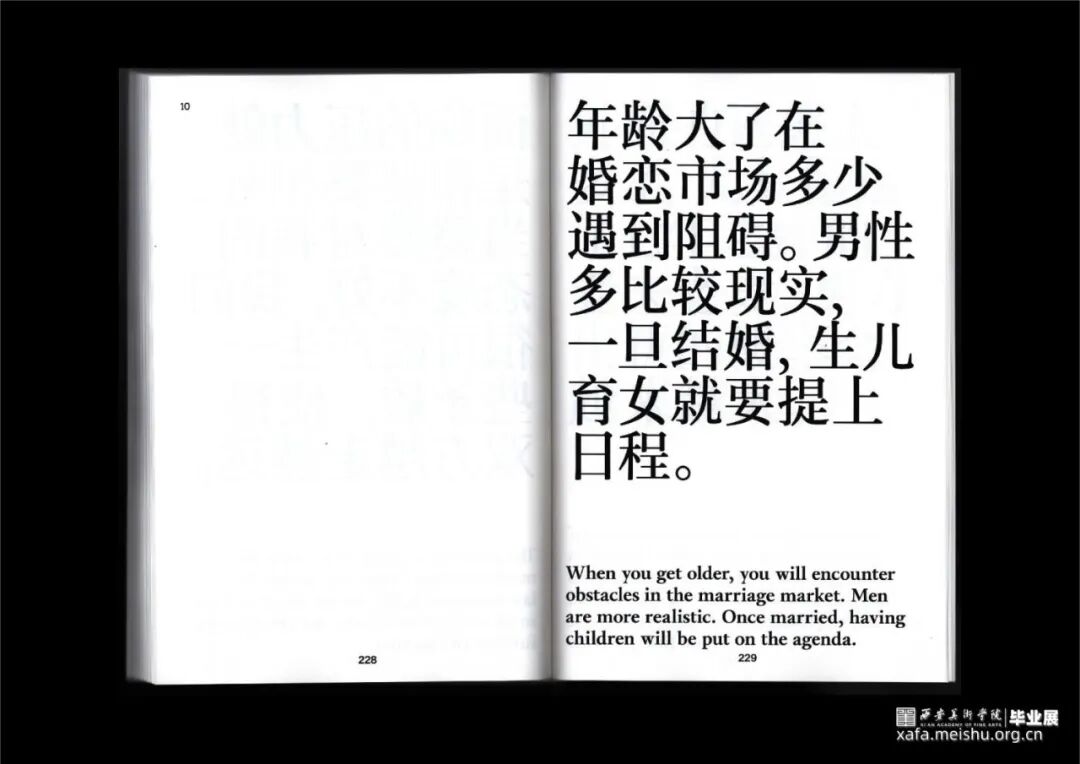 10
228
年龄大了在
婚恋市场多少
遇到阻碍。男性
多比较现实,
一旦结婚, 生儿
育女就要提上
日程。
When you get older, you will encounter
obstacles in the marriage market. Men
are more realistic. Once married, having
children will be put on the agenda.
229
西安美术学院
XI'AN ACADEMY OF FINE ARTS
毕业展
xafa.meishu.org.cn